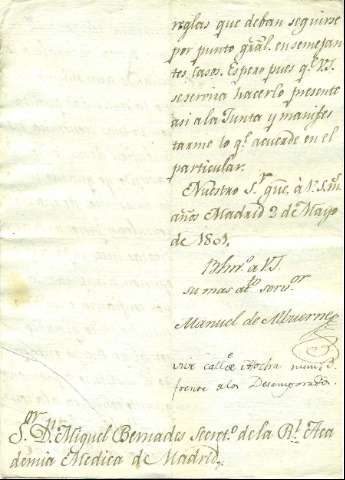 reglas que deban seguirse
por punto gral. en semejan
tes casos. Espero pues q.e V.S.
se servira hacerlo presente
asi a la Junta y manifes
tarme lo q.e acuerde en el
particular.
Nuestro S.r gue. à V.S. m.s
años Madrid 2 de Mayo
de 1801.
Blmo. a V.S.
su mas at.o serv.or
Manuel de Albuerne
vive calle Atocha num.
frente a los Desemparados.
S.or D.n Miguel Bernades Secret.o de la R.l Aca
demia Medica de Madrid.